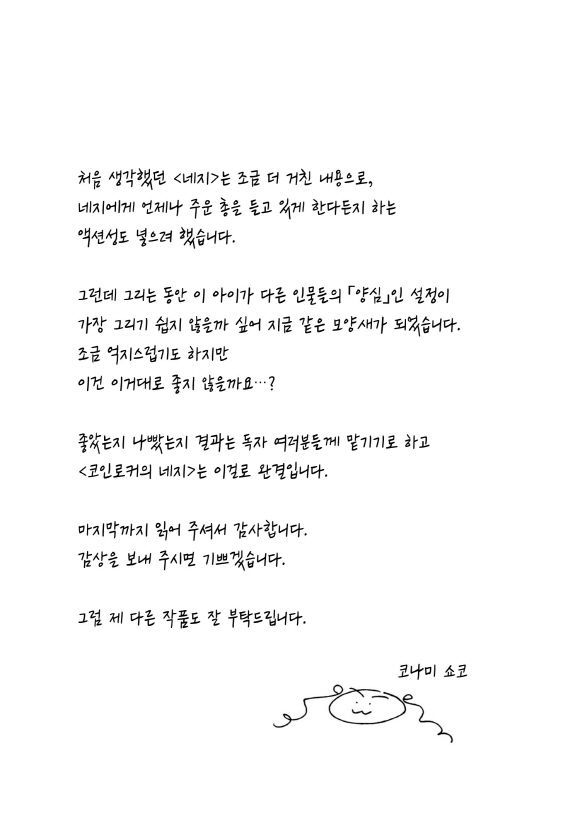 처음 생각했던 <네지>는 조금 더 거친 내용으로,
네지에게 언제나 주운 총을 들고 있게 한다든지 하는
액션성도 넣으려 했습니다.
그런데 그리는 동안 이 아이가 다른 인물들의 「양심」인 설정이
가장 그리기 쉽지 않을까 싶어 지금 같은 모양새가 되었습니다.
조금 억지스럽기도 하지만
이건 이거대로 좋지 않을까요…?
좋았는지 나빴는지 결과는 독자 여러분들께 맡기기로 하고
<코인로커의 네지>는 이걸로 완결입니다.
마지막까지 읽어 주셔서 감사합니다.
감상을 보내 주시면 기쁘겠습니다.
그럼 제 다른 작품도 잘 부탁드립니다.
코나미 쇼코